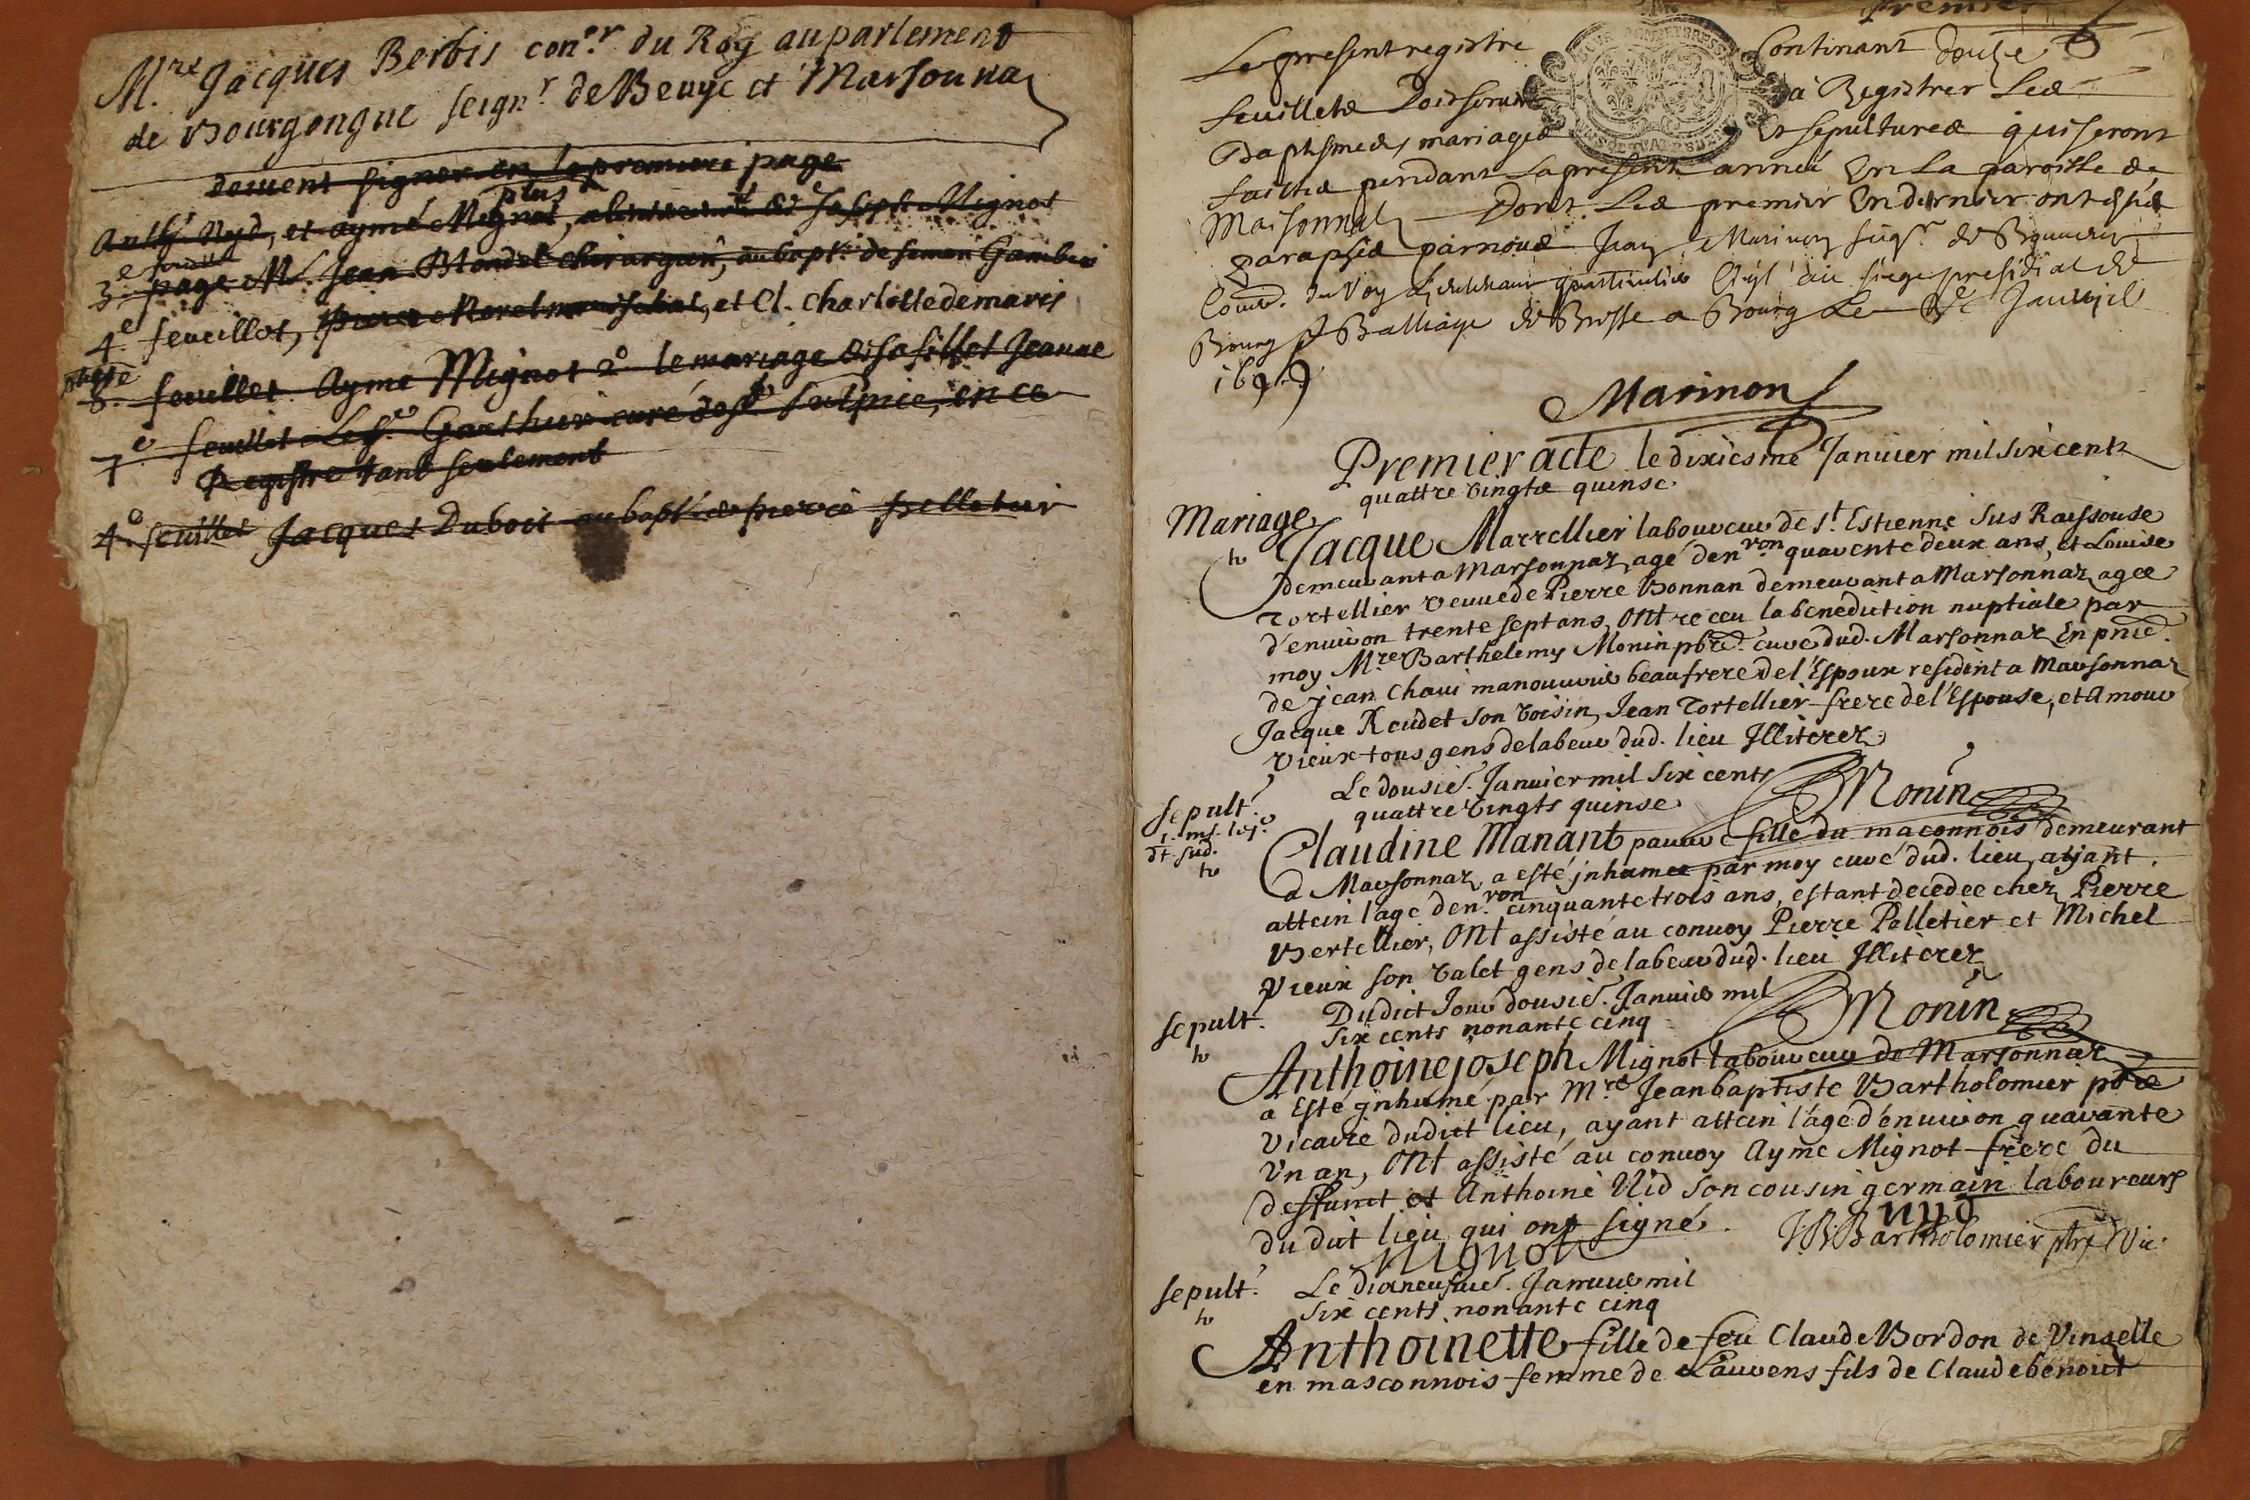 M.re Jacques Berbis con.er du Roy au parlement
de Bourgongne seign.r de Beuye et Marsonna
doivent signer en la premiere page
Anth. Nyd, et aymé Mignot, plus
Joseph Mignot
3.e feuillet
page M.e Jean Blondel chirurgien, au bapt. de simon Gambi
4.e feueillet, pierre Morel mareschal, et Cl. charlotte demaris
feuillet Aymé Mignot 2.o le mariage de sa fille et Jeanne
7.e feuillet Le Sr. Garthur curé de st. Sulpice, en ce
Registre tant seulement
4.e feuillet Jacques Duboit au bapt. de pierre pelletier
Premier
Le present registre Continant douze
feuilletz Registrer Les
Baptesmes, mariages Et sepultures qui seront
faictes pendant La presente année En La paroisse de
Marsonnaz Dont Les premier En dernier ont estés
paraphés par nous Jean Marinon seig.r de
Con.er du Roy Lieutenant particulier au siege presidial de
Bourg Balliage de Bresse a Bourg Le Janvier
1695
Marinon
Premier acte le dixiesme Januier mil six cents
quattre vingts quinse
Mariage
Jacque Marrellier laboureur de st. Estienne sus Raissouse
demeurant a Marsonnaz, agé d'en.von quarente deux ans, et Louise
Tortellier veuve de Pierre Bonnan demeurant a Marsonnaz agee
d'enuiron trente sept ans, ont receu la benediction nuptiale par
moy M.re Barthelemy Monin pbre. curé dud. Marsonnaz En pnce.
de jean Chavi manouvrie beaufrere de l'Espoux resident a Marsonnaz
Jacque Reudet son voisin, Jean Tortellier frere de l'Espouse, et Amour
Vieux tous gens de labeur dud. lieu Illiterez
Monin
sepult.
Le dousie. Januier mil six cents
quattre vingts quinse
Claudine Manant pauvre fille du maconnois demeurant
a Marsonnaz, a esté jnhumee par moy curé dud. lieu, ayant
attein l'age d'en.von cinquante trois ans, estant decedee chez Pierre
Bertellier, ont assisté au convoy Pierre Pelletier et Michel
Vieux son valet gens de labeur dud. lieu Illiterez
Monin
sepult.
Dudict Jour dousie. Januie mil
six cents nonante cinq
Anthoine joseph Mignot laboureur de Marsonnaz
a Esté jnhumé par M.re Jean baptiste Bartholomier pbre
vicaire dudict lieu, ayant attein l'âge d'enuiron quarante
un an, ont assisté au convoy Aymé Mignot frere du
deffunct et Anthoine Nid son cousin germain laboureurs
du dit lieu qui ont signé.
Mignot nyd
JB Bartholomier ptre Vic.
sepult.
Le dixneufuie. Januie mil
six cents nonante cinq
Anthoinette fille de feu Claude Bordon de Vinzelle
en masconnois femme de Laurens fils de Claude benoict